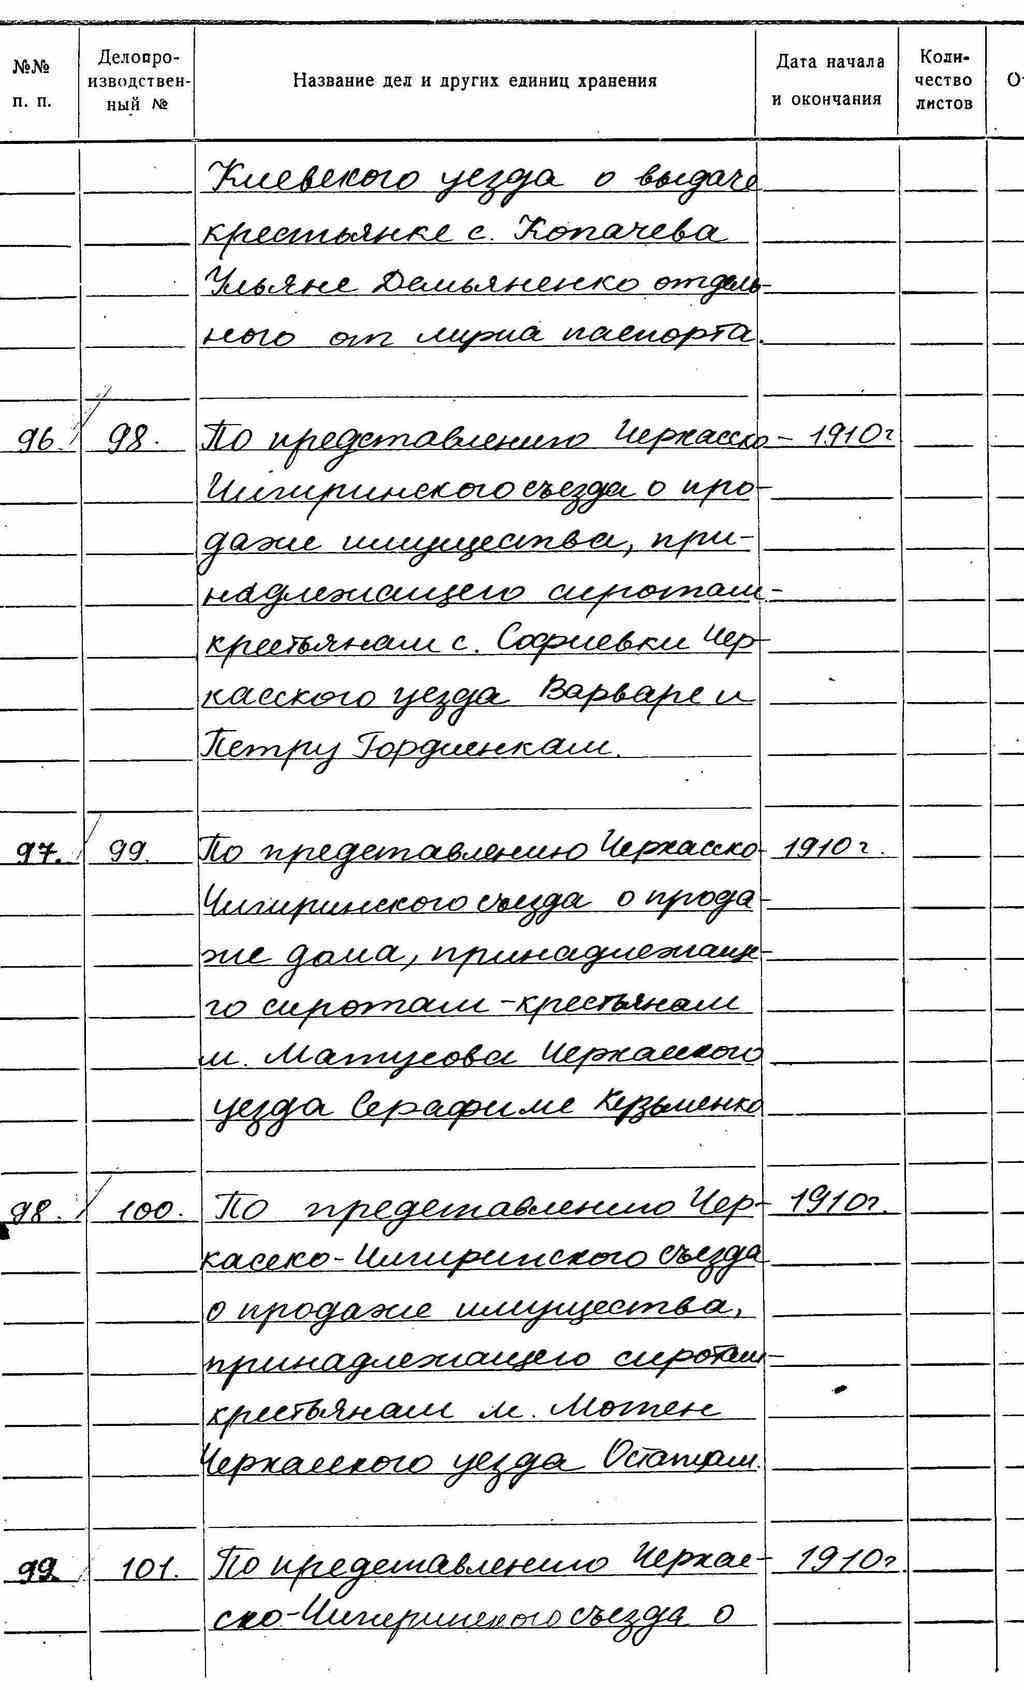 №№ п. п. Делопро-изводствен-ный № Название дел и других единиц хранения Дата начала и окончания Коли-чество листов
Киевского уезда о выдаче
крестьянке с. Копачева
Ульяне Демьяненко отдель-
ного от мужа паспорта.
96. 98. По представлению Черкасско- 1910г
Чигиринского съезда о про-
даже имущества, при-
надлежащего сиротам-
крестьянам с. Софиевки Чер-
касского уезда Варваре и
Петру Гордиенкам.
97. 99. По представлению Черкасско- 1910г.
Чигиринского съезда о прода-
же дома, принадлежаще-
го сиротам-крестьянам
м. Матусова Черкасского
уезда Серафиме Кузьменко
98. 100. По представлению Чер- 1910г.
касско-Чигиринского съезда
о продаже имущества,
принадлежащего сиротам-
крестьянам м. Мошен
Черкасского уезда
99. 101. По представлению Черкас- 1910г
ско-Чигиринского съезда о